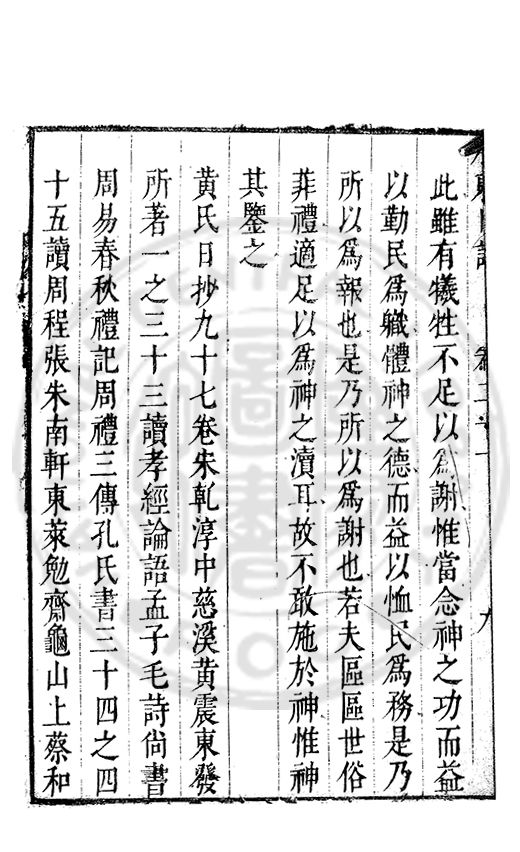 此雖有犧牲不足以爲謝惟當念神之功而益
以勤民爲職體神之德而益以恤民爲務是乃
所以爲報也是乃所以爲謝也若夫區區世俗
菲禮適足以爲神之瀆耳故不敢施於神惟神
其鑒之
黃氏日抄九十七卷朱乹淳中慈溪黃震東發
所著一之三十三讀孝經論語孟子毛詩尙書
周易春秋禮記周禮三傳孔氏書三十四之四
十五讀周程張朱南軒東萊勉齋龜山上蔡和